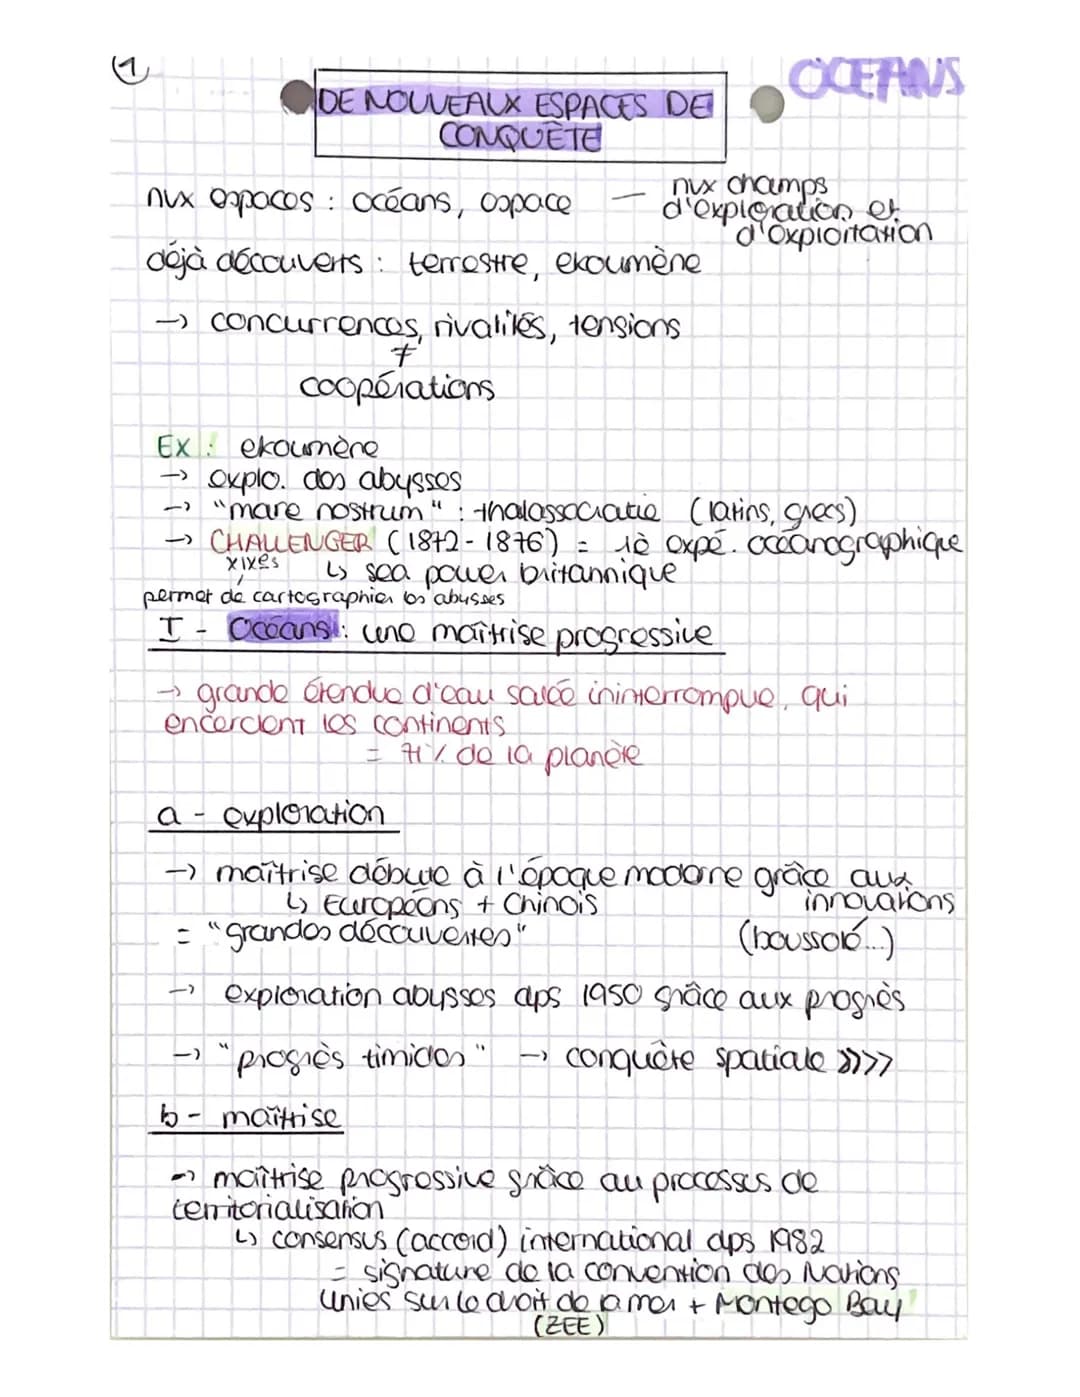 1
OCEANS
DE NOUVEAUX ESPACES DE
CONQUÊTE
nvx espaces : océans, espace — nvx champs
d'exploration et
d'exploitation
déjà découverts : terrestre, ekoumène
→ concurrences, rivalités, tensions
≠
coopérations
Ex : ekoumène
→ explo. des abysses
→ "mare nostrum" : thalassocratie (latins, grecs)
→ CHALLENGER (1872-1876) = 1è expé. océanographique
XIXes ↳ sea power britannique
permet de cartographier les abysses
I - Océans : une maîtrise progressive
→ grande étendue d'eau salée ininterrompue, qui
encerclent les continents
= 71% de la planète
a - exploration
→ maîtrise débute à l'époque moderne grâce aux
↳ Européens + Chinois innovations
= "grandes découvertes" (boussole...)
→ exploration abysses dps 1950 grâce aux progrès
→ "progrès timides" → conquête spatiale >>>>
b - maîtrise
→ maîtrise progressive grâce au processus de
territorialisation
↳ consensus (accord) international dps 1982
= signature de la convention des Nations
Unies sur le droit de la mer + Montego Bay
(ZEE)